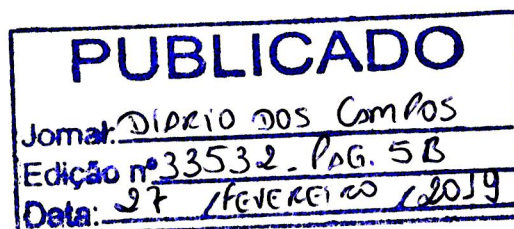 PUBLICADO
Jornal: DIARIO DOS CAMPOS
Edição nº 33532 - PAG. 5B
Data: 27 / FEVEREIRO / 2019